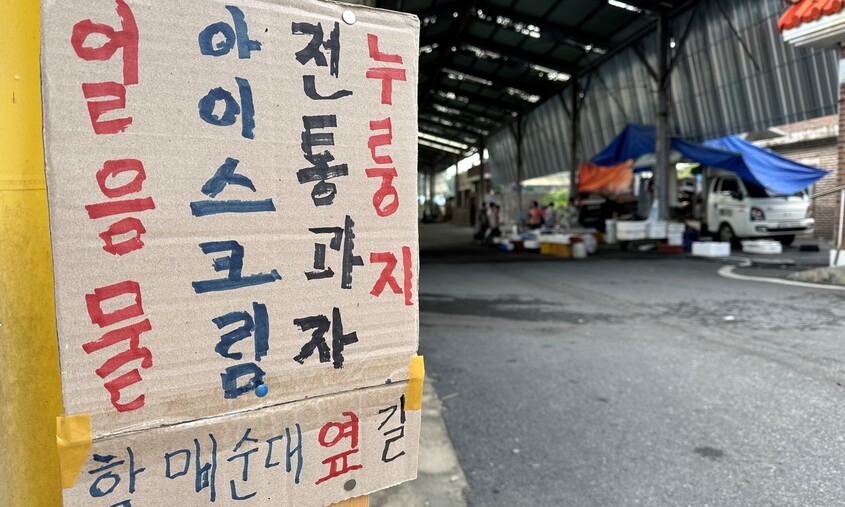 얼음물
아이스크림
전통과자
누룽지
할매순대 옆 길